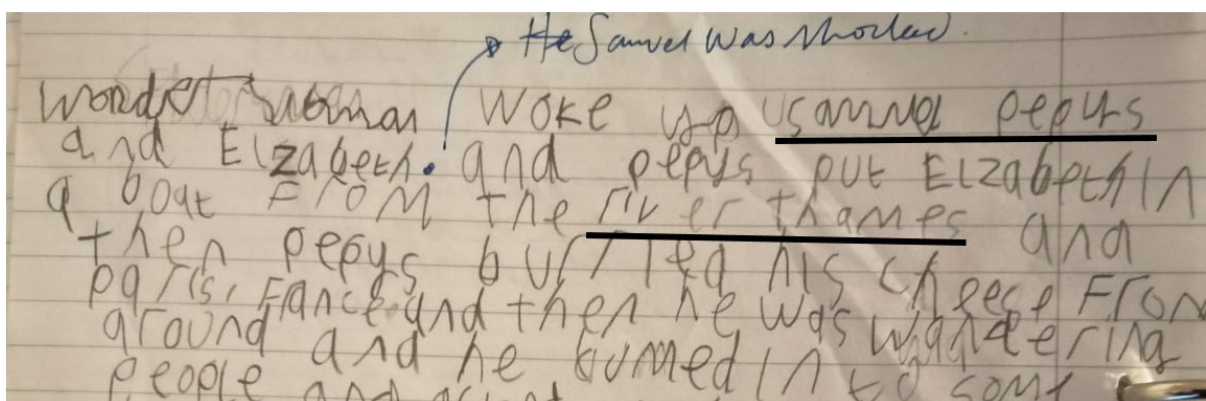 He Samuel was shocked.
Wonder woman WOKE up samuel pepys
and Elzabeth. and pepys put Elzabeth In
a boat From the river thames and
then pepys burried his cheese From
paris, France and then he was wandering
around and he bumed In to some
people and